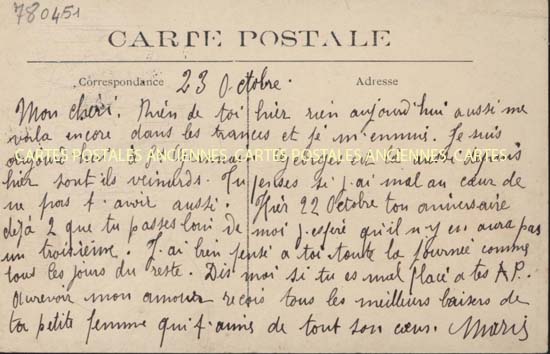 780451
CARTE POSTALE
Correspondance 23 Octobre. Adresse
Mon chéri. Rien de toi hier rien aujourd'hui aussi me
voila encore dans les trances et je m'ennui. Je suis
CARTES POSTALES ANCIENNES CARTES POSTALES ANCIENNES CARTES POSTALES ANCIENNES
hier sont ils veinards. Tu penses si j'ai mal au cœur de
ne pas t'avoir aussi. Hier 22 Octobre ton anniversaire
déjà 2 que tu passes loin de moi j'espére qu'il n'y en aura pas
un troisieme. J'ai bien pensé a toi toute la journée comme
tout les jours du reste. Dis moi si tu es mal placé a tes A.P.
Aurevoir mon amour recois tous les meilleurs baisers de
ta petite femme qui t'aimes de tout son cœur. Marie